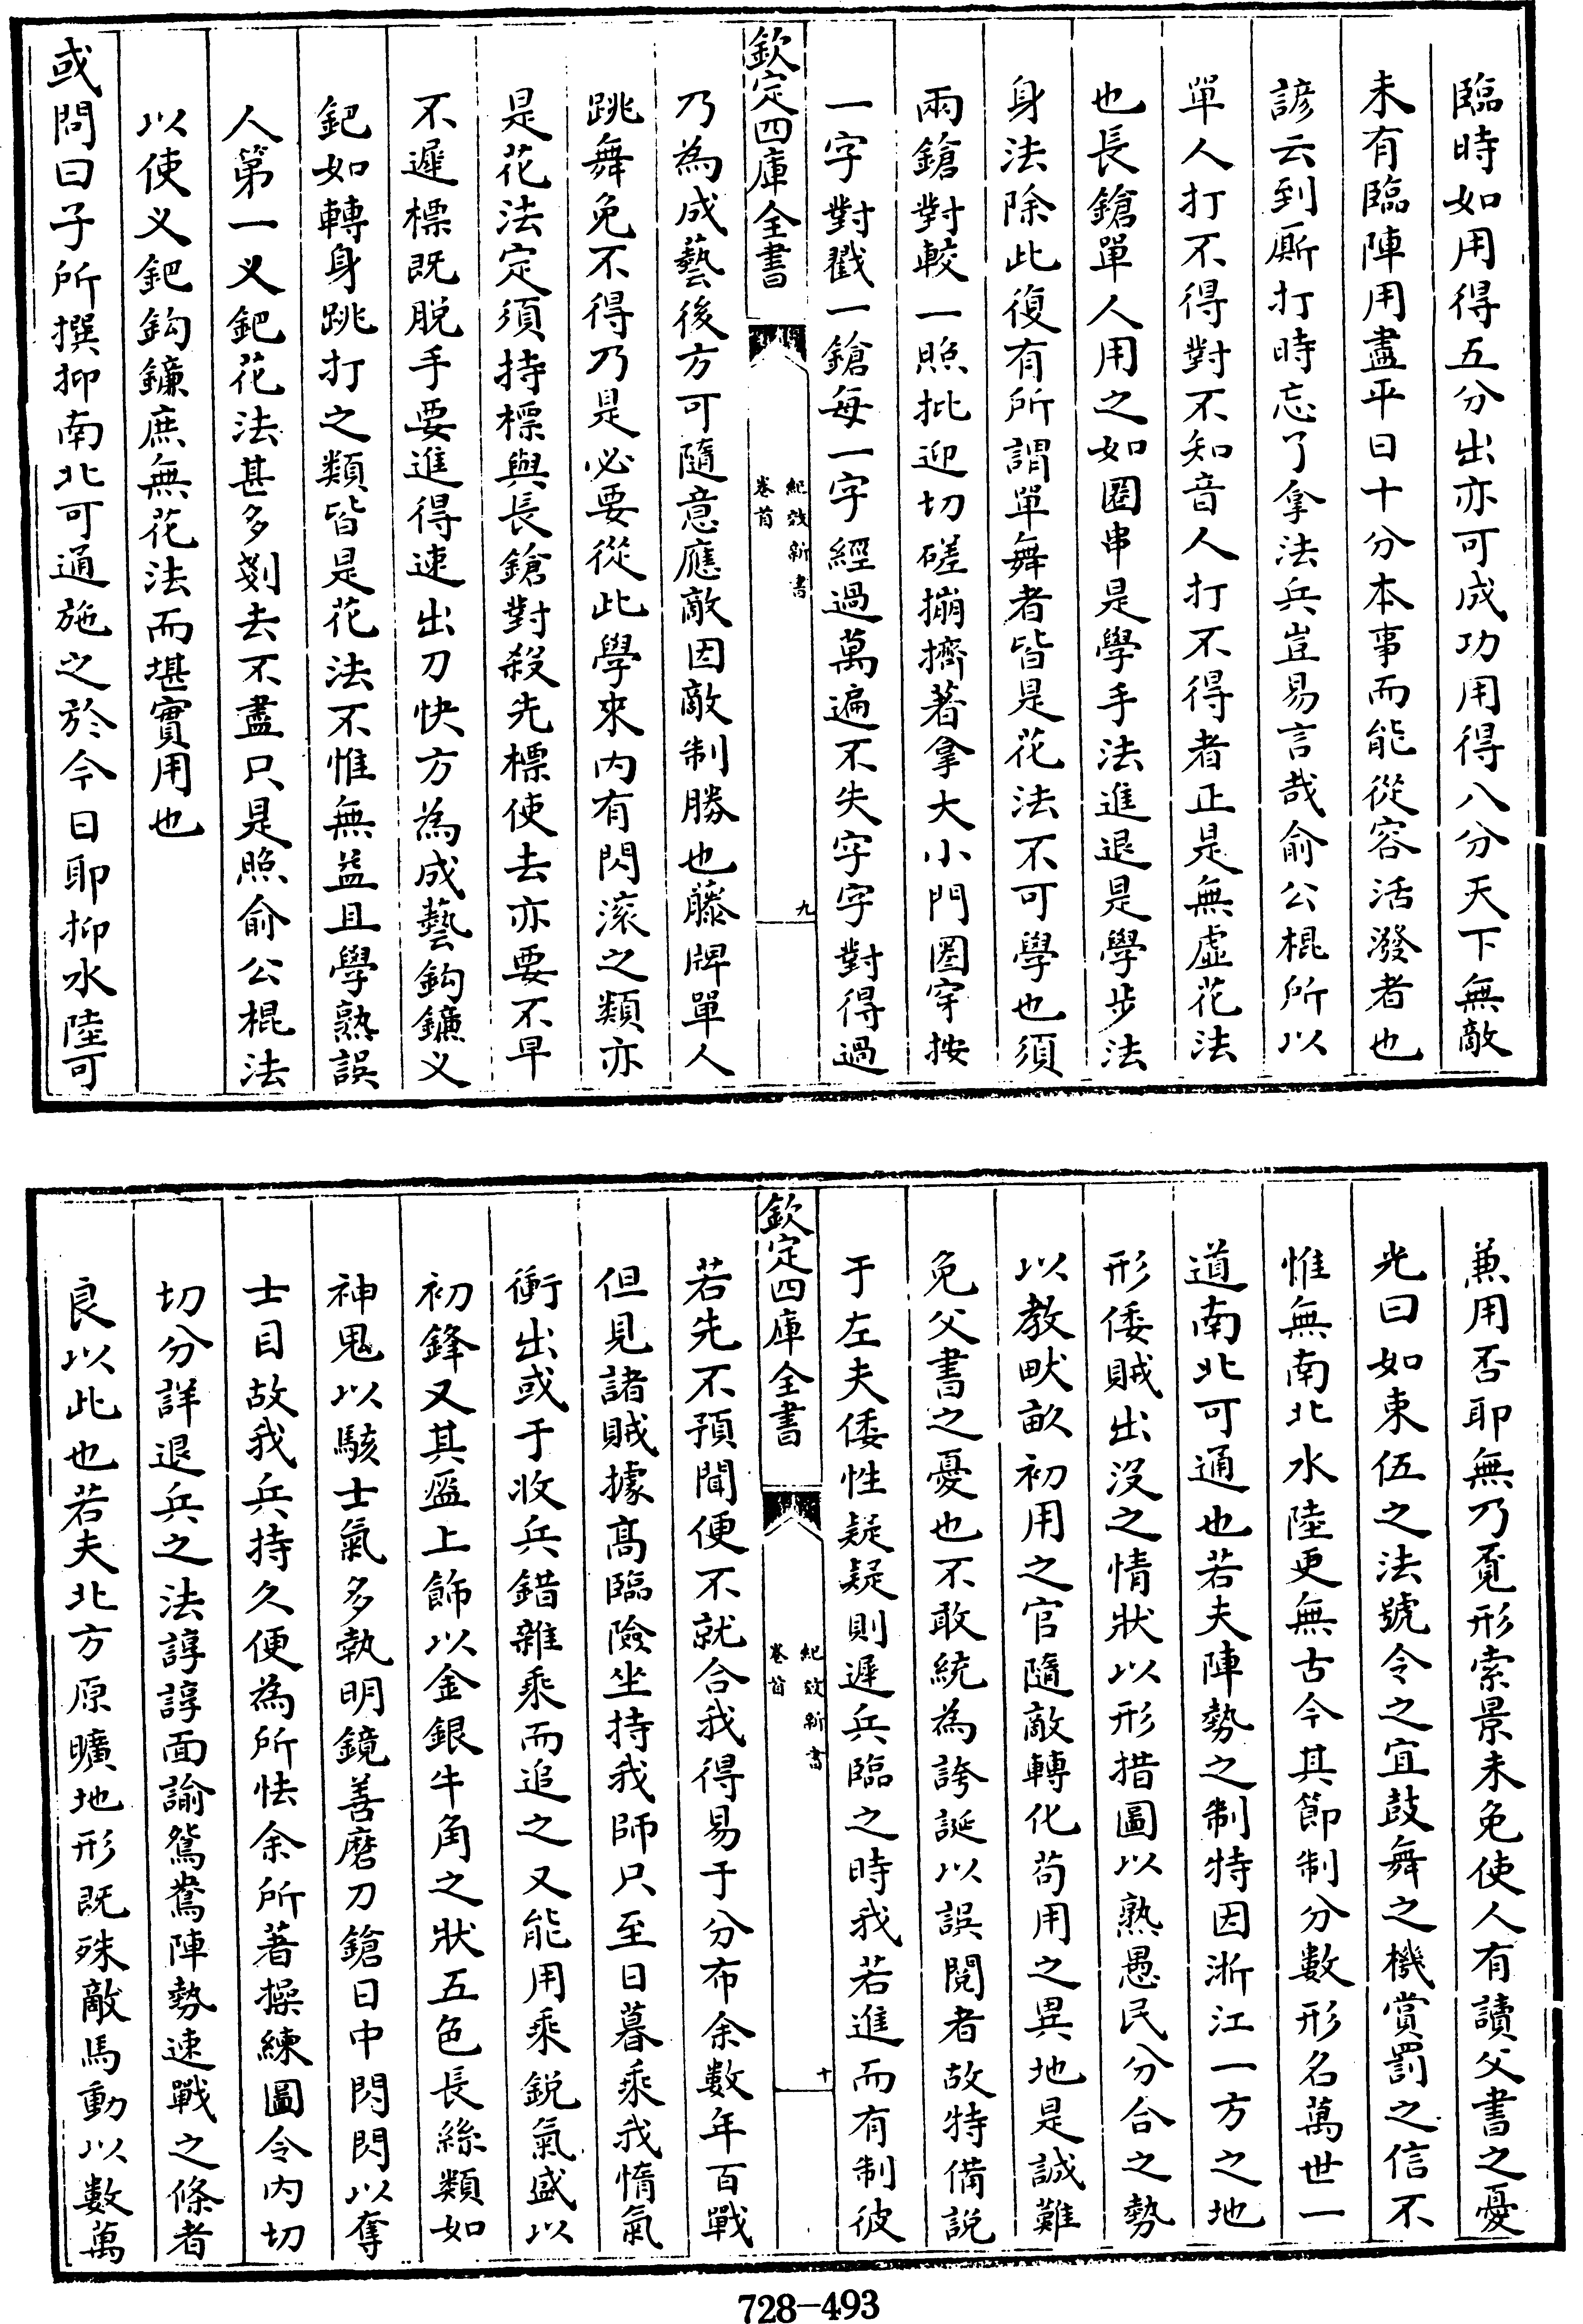 臨時如用得五分出亦可成功用得八分天下無敵
未有臨陣用盡平日十分本事而能從容活潑者也
諺云到厮打時忘了拿法兵豈易言哉俞公棍所以
單人打不得對不知音人打不得者正是無虛花法
也長鎗單人用之如圈串是學手法進退是學步法
身法除此復有所謂單舞者皆是花法不可學也須
兩鎗對較一照批迎切磋搠擠著拿大小門圈穿按
一字對戳一鎗每一字經過萬遍不失字字對得過
欽定四庫全書
紀效新書
卷首
九
乃為成藝後方可隨意應敵因敵制勝也藤牌單人
跳舞免不得乃是必要從此學來内有閃滚之類亦
是花法定須持標與長鎗對殺先標使去亦要不早
不遲標既脱手要進得速出刀快方為成藝鈎鐮义
鈀如轉身跳打之類皆是花法不惟無益且學熟誤
人第一义鈀花法甚多剗去不盡只是照俞公棍法
以使义鈀鈎鐮庶無花法而堪實用也
或問曰子所撰抑南北可通施之於今日耶抑水陸可
兼用否耶無乃覔形索景未免使人有讀父書之憂
光曰如束伍之法號令之宜鼓舞之機賞罰之信不
惟無南北水陸更無古今其節制分數形名萬世一
道南北可通也若夫陣勢之制特因浙江一方之地
形倭賊出沒之情狀以形措圖以熟愚民分合之勢
以教畎畝初用之官隨敵轉化苟用之異地是誠難
免父書之憂也不敢統為誇誕以誤閱者故特備說
于左夫倭性疑疑則遲兵臨之時我若進而有制彼
欽定四庫全書
紀效新書
卷首
十
若先不預聞便不就合我得易于分布余數年百戰
但見諸賊據髙臨險坐持我師只至日暮乘我惰氣
衝出或于收兵錯雜乘而追之又能用乘銳氣盛以
初鋒又其盔上飾以金銀牛角之狀五色長絲類如
神鬼以駭士氣多執明鏡善磨刀鎗日中閃閃以奪
士目故我兵持久便為所怯余所著操練圖令内切
切分詳退兵之法諄諄面諭鴛鴦陣勢速戰之條者
良以此也若夫北方原曠地形既殊敵馬動以數萬
728-493